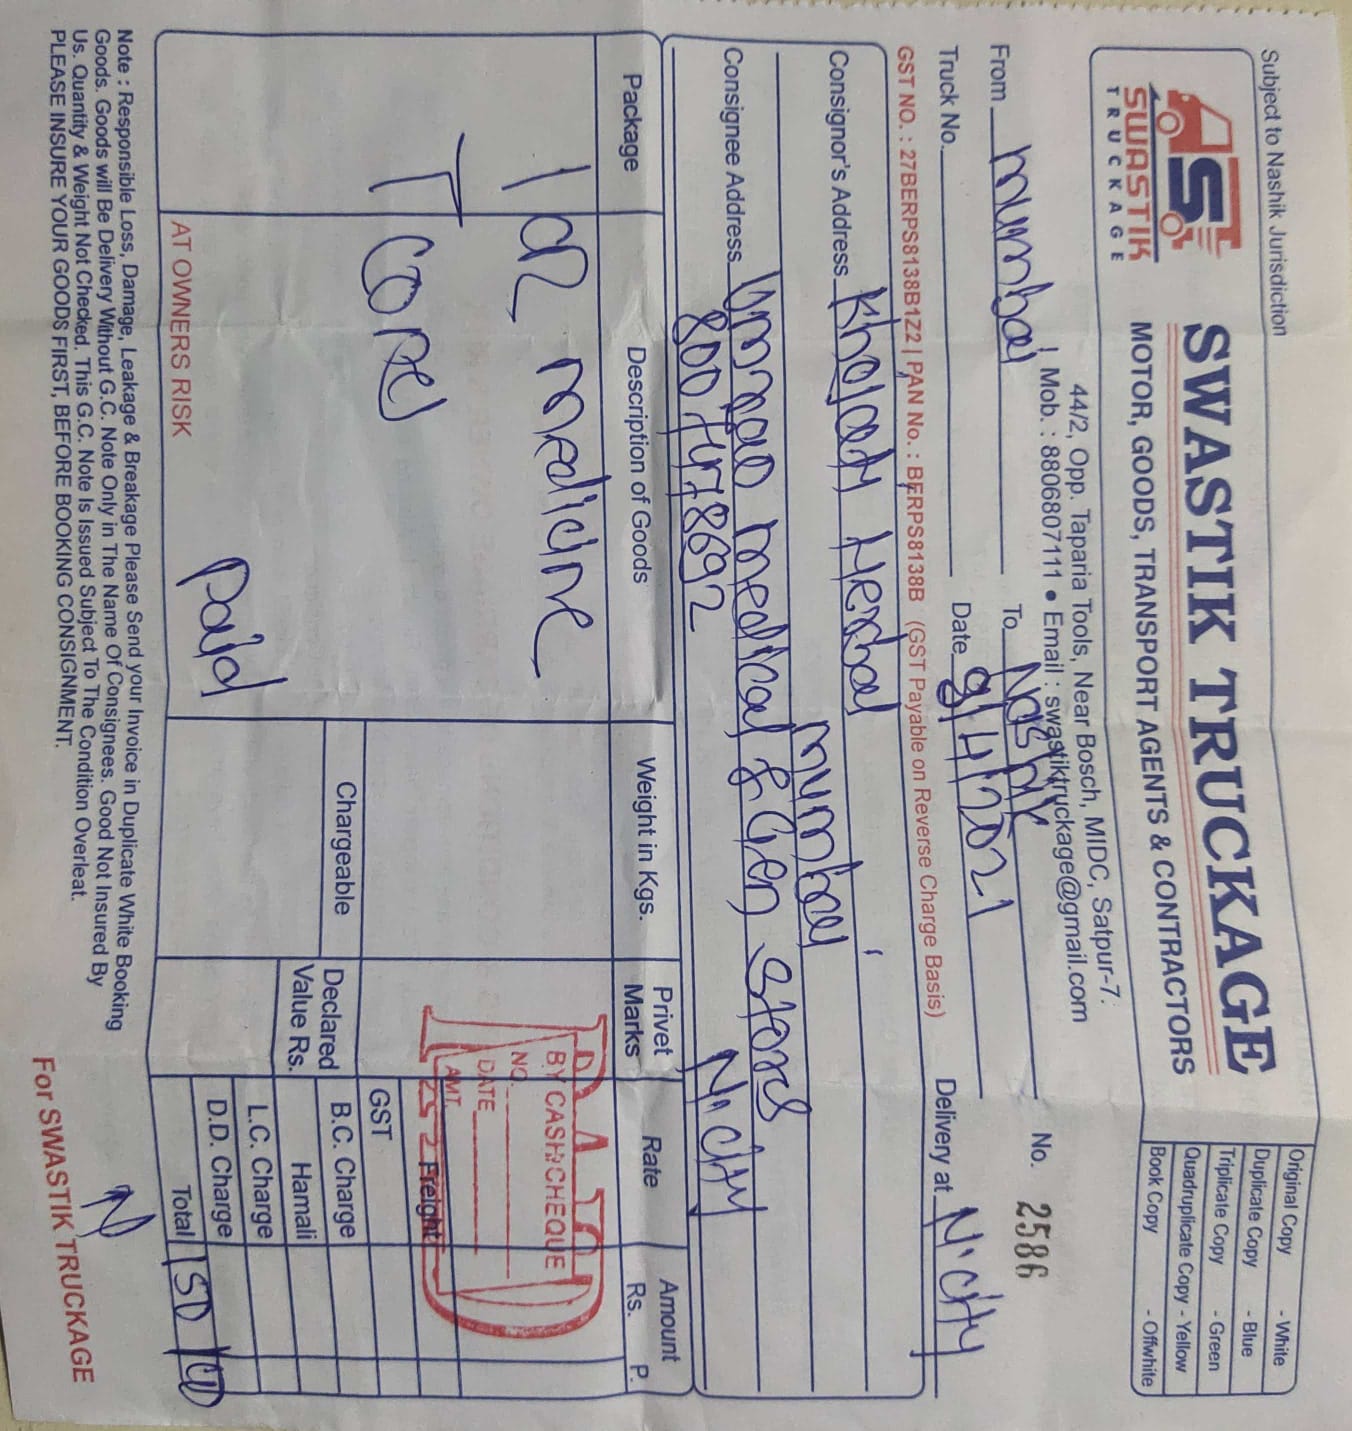 Subject to Nashik Jurisdiction
SWASTIK
TRUCKAGE
SWASTIK TRUCKAGE
MOTOR, GOODS, TRANSPORT AGENTS & CONTRACTORS
44/2, Opp. Taparia Tools, Near Bosch, MIDC, Satpur-7.
Mob. : 8806807111 ● Email : swastiktruckage@gmail.com
Original Copy - White
Duplicate Copy - Blue
Triplicate Copy - Green
Quadruplicate Copy - Yellow
Book Copy - Offwhite
From mumbai To Nashik No. 2586
Truck No. Date 9/4/2021 Delivery at N. City
GST NO. : 27BERPS8138B1Z2 | PAN No. : BERPS8138B (GST Payable on Reverse Charge Basis)
Consignor's Address Herbal
mumbai
Consignee Address medical & Gen Stores
N. City
Package Description of Goods Weight in Kgs. Privet Marks Rate Amount Rs. P.
medicine
PAID
BY CASH/CHEQUE
NO.
DATE
AMT.
Freight
GST
Chargeable Declared Value Rs. B.C. Charge
Hamali
L.C. Charge
D.D. Charge
AT OWNERS RISK Paid Total
Note : Responsible Loss, Damage, Leakage & Breakage Please Send your Invoice in Duplicate White Booking
Goods. Goods will Be Delivery Without G.C. Note Only in The Name Of Consignees. Good Not Insured By
Us. Quantity & Weight Not Checked. This G.C. Note Is Issued Subject To The Condition Overleat.
PLEASE INSURE YOUR GOODS FIRST, BEFORE BOOKING CONSIGNMENT.
For SWASTIK TRUCKAGE